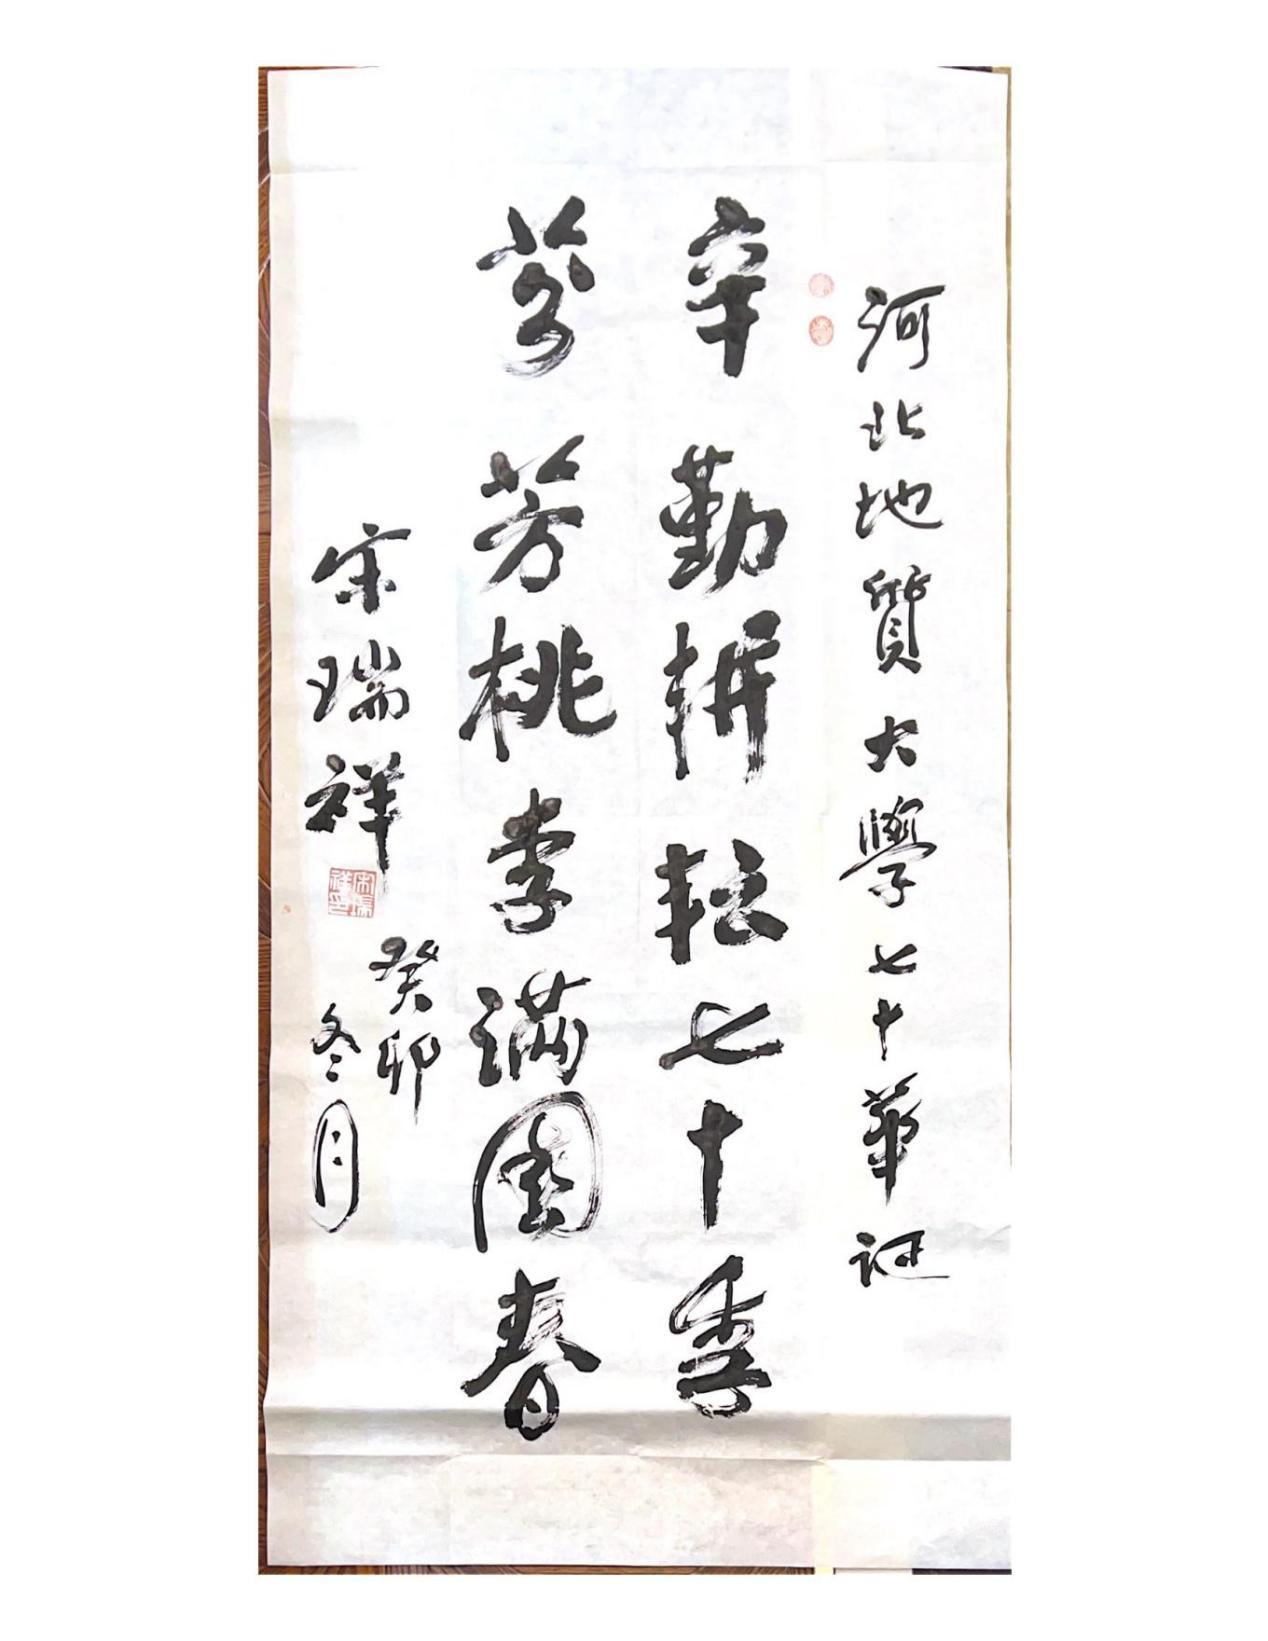 河北地質大學七十華诞
辛勤耕耘七十季
芬芳桃李满園春
宋瑞祥
癸卯
冬月
宋瑞祥印